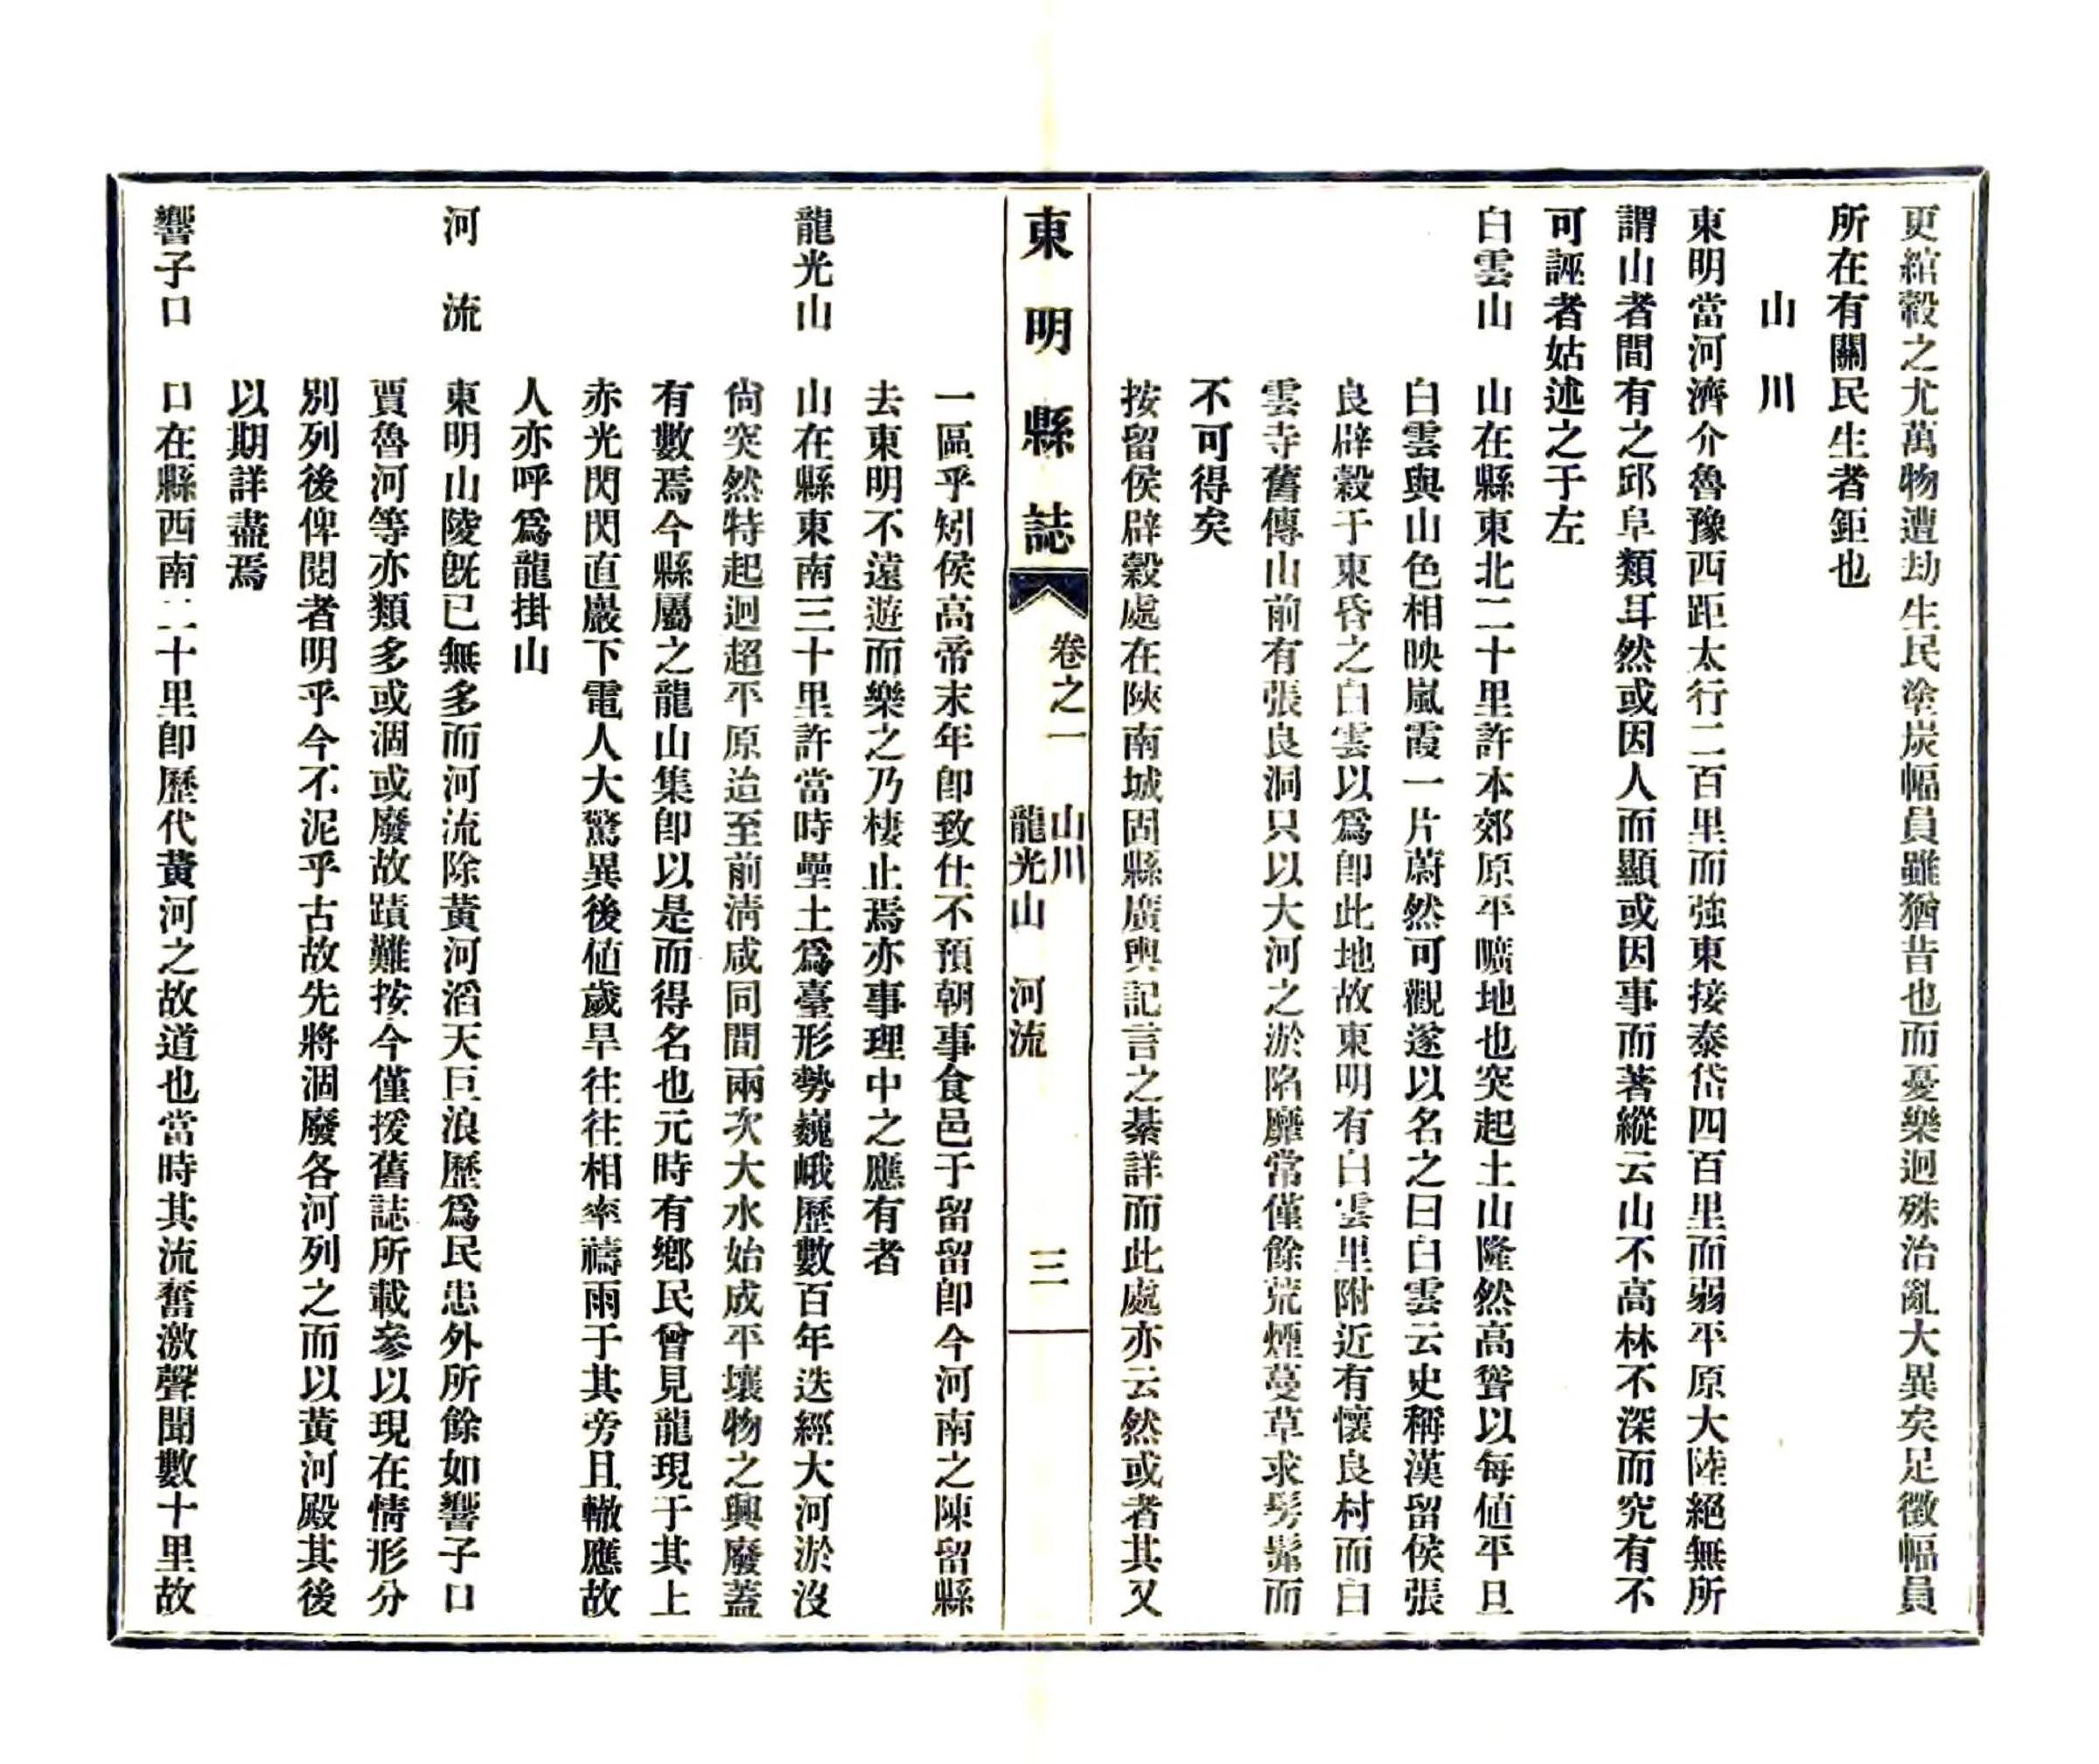 更綰轂之尤萬物遭劫生民塗炭幅員雖猶昔也而憂樂迥殊治亂大異矣足徵幅員
所在有關民生者鉅也
山川
東明當河濟介魯豫西距太行二百里而強東接泰岱四百里而弱平原大陸絕無所
謂山者間有之邱阜類耳然或因人而顯或因事而著縱云山不高林不深而究有不
可誣者姑述之于左
白雲山　山在縣東北二十里許本郊原平曠地也突起土山隆然高聳以每値平旦
白雲與山色相映嵐霞一片蔚然可觀遂以名之曰白雲云史稱漢留侯張
良辟穀于東昏之白雲以爲卽此地故東明有白雲里附近有懷良村而白
雲寺舊傳山前有張良洞只以大河之淤陷靡常僅餘荒煙蔓草求髣髴而
不可得矣
按留侯辟穀處在陝南城固縣廣輿記言之綦詳而此處亦云然或者其又
東明縣誌
卷之一　山川
龍光山　河流
三
一區乎矧侯高帝末年卽致仕不預朝事食邑于留留卽今河南之陳留縣
去東明不遠遊而樂之乃棲止焉亦事理中之應有者
龍光山　山在縣東南三十里許當時壘土爲臺形勢巍峨歷數百年迭經大河淤沒
尙突然特起迥超平原迨至前淸咸同間兩次大水始成平壤物之興廢蓋
有數焉今縣屬之龍山集卽以是而得名也元時有鄕民曾見龍現于其上
赤光閃閃直巖下電人大驚異後値歲旱往往相率禱雨于其旁且轍應故
人亦呼爲龍掛山
河流　東明山陵旣已無多而河流除黃河滔天巨浪歷爲民患外所餘如響子口
賈魯河等亦類多或涸或廢故蹟難按今僅援舊誌所載參以現在情形分
別列後俾閱者明乎今不泥乎古故先將涸廢各河列之而以黃河殿其後
以期詳盡焉
響子口　口在縣西南二十里卽歷代黃河之故道也當時其流奮激聲聞數十里故